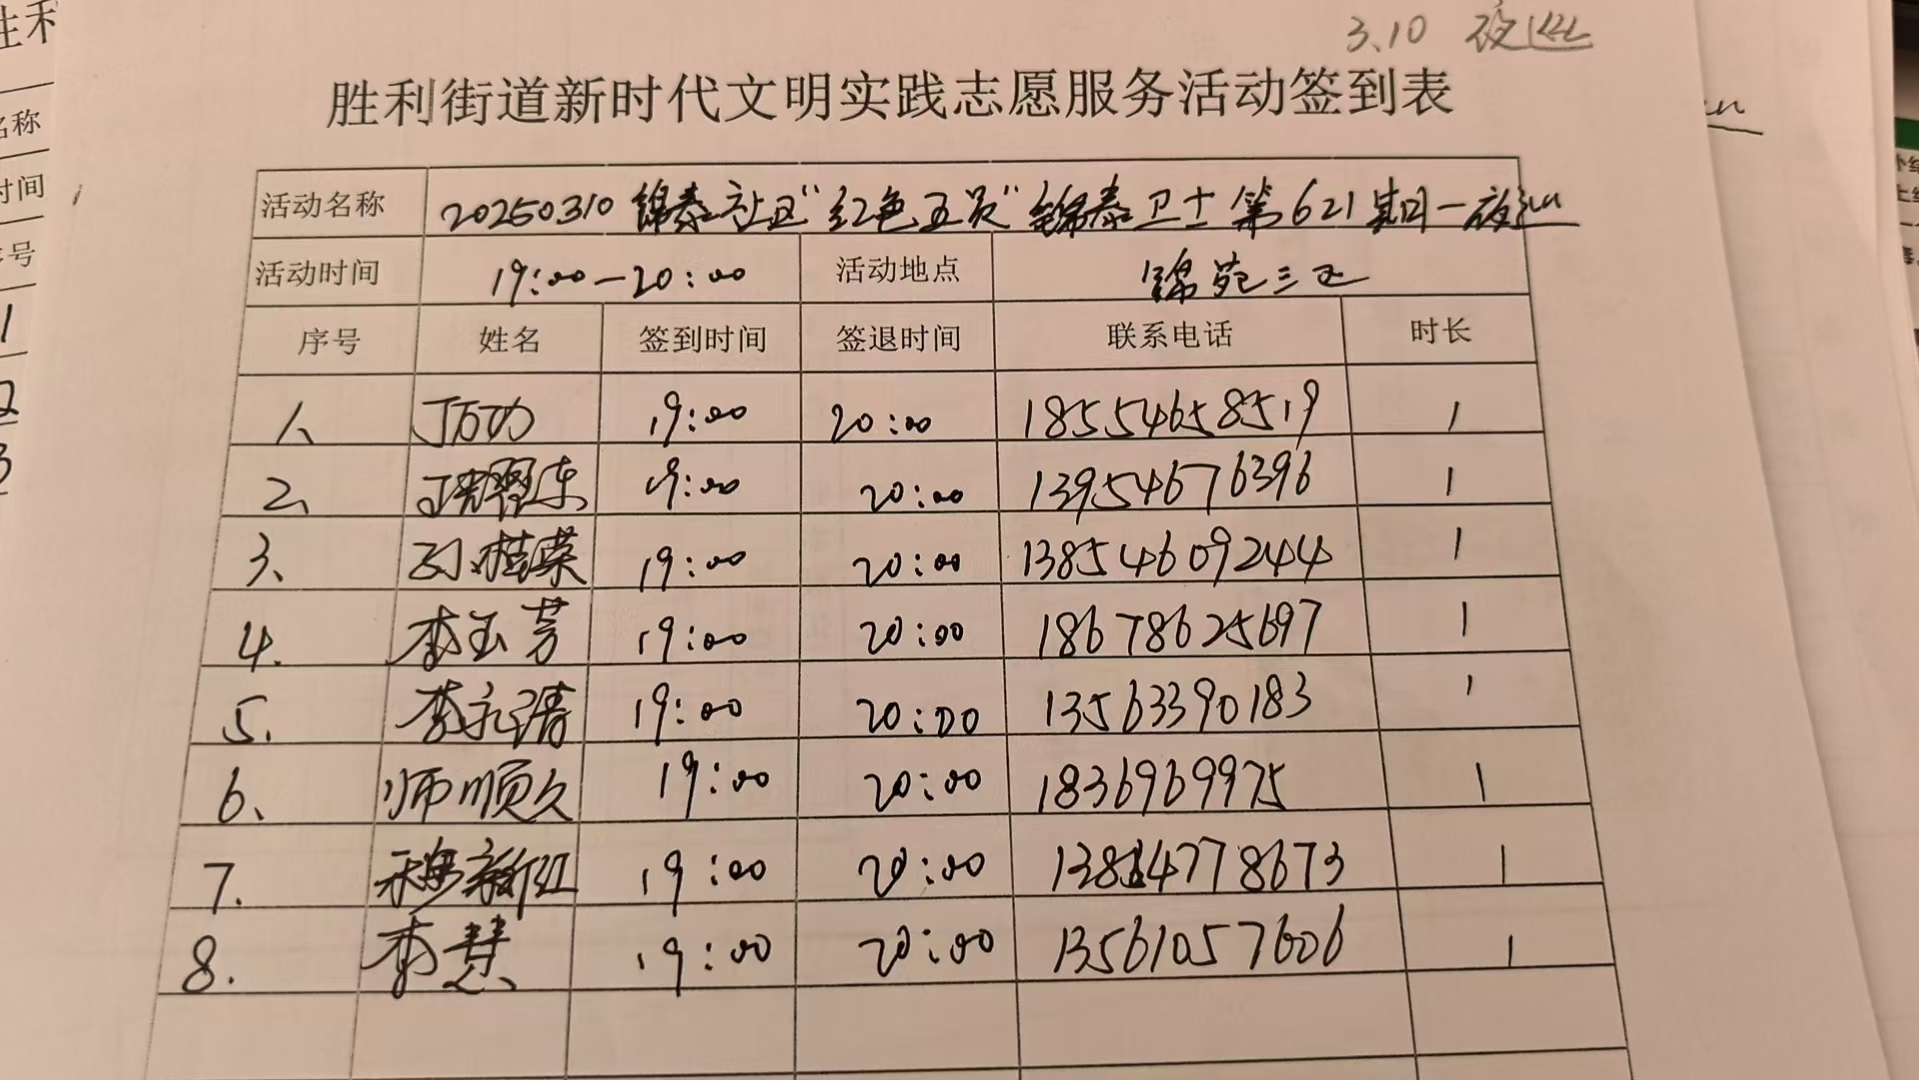 3.10 夜巡
胜利街道新时代文明实践志愿服务活动签到表
活动名称 20250310 锦泰社区“红色五员”锦泰卫士第621期—夜巡
活动时间 19:00—20:00 活动地点 锦苑三区
序号 姓名 签到时间 签退时间 联系电话 时长
1、 丁万功 19:00 20:00 18554658519 1
2、 19:00 20:00 13954676396 1
3、 孙桂荣 19:00 20:00 13854609244 1
4. 李玉芳 19:00 20:00 18678625697 1
5. 李永清 19:00 20:00 13563390183 1
6、 师顺久 19:00 20:00 1836969975 1
7. 穆新红 19:00 20:00 4778673 1
8. 李慧 19:00 20:00 13561057606 1